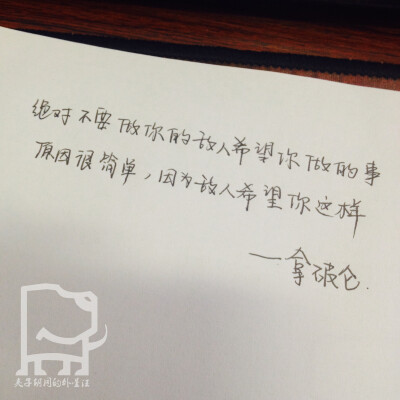 绝对不要做你的敌人希望你做的事
原因很简单，因为敌人希望你这样
—拿破仑.